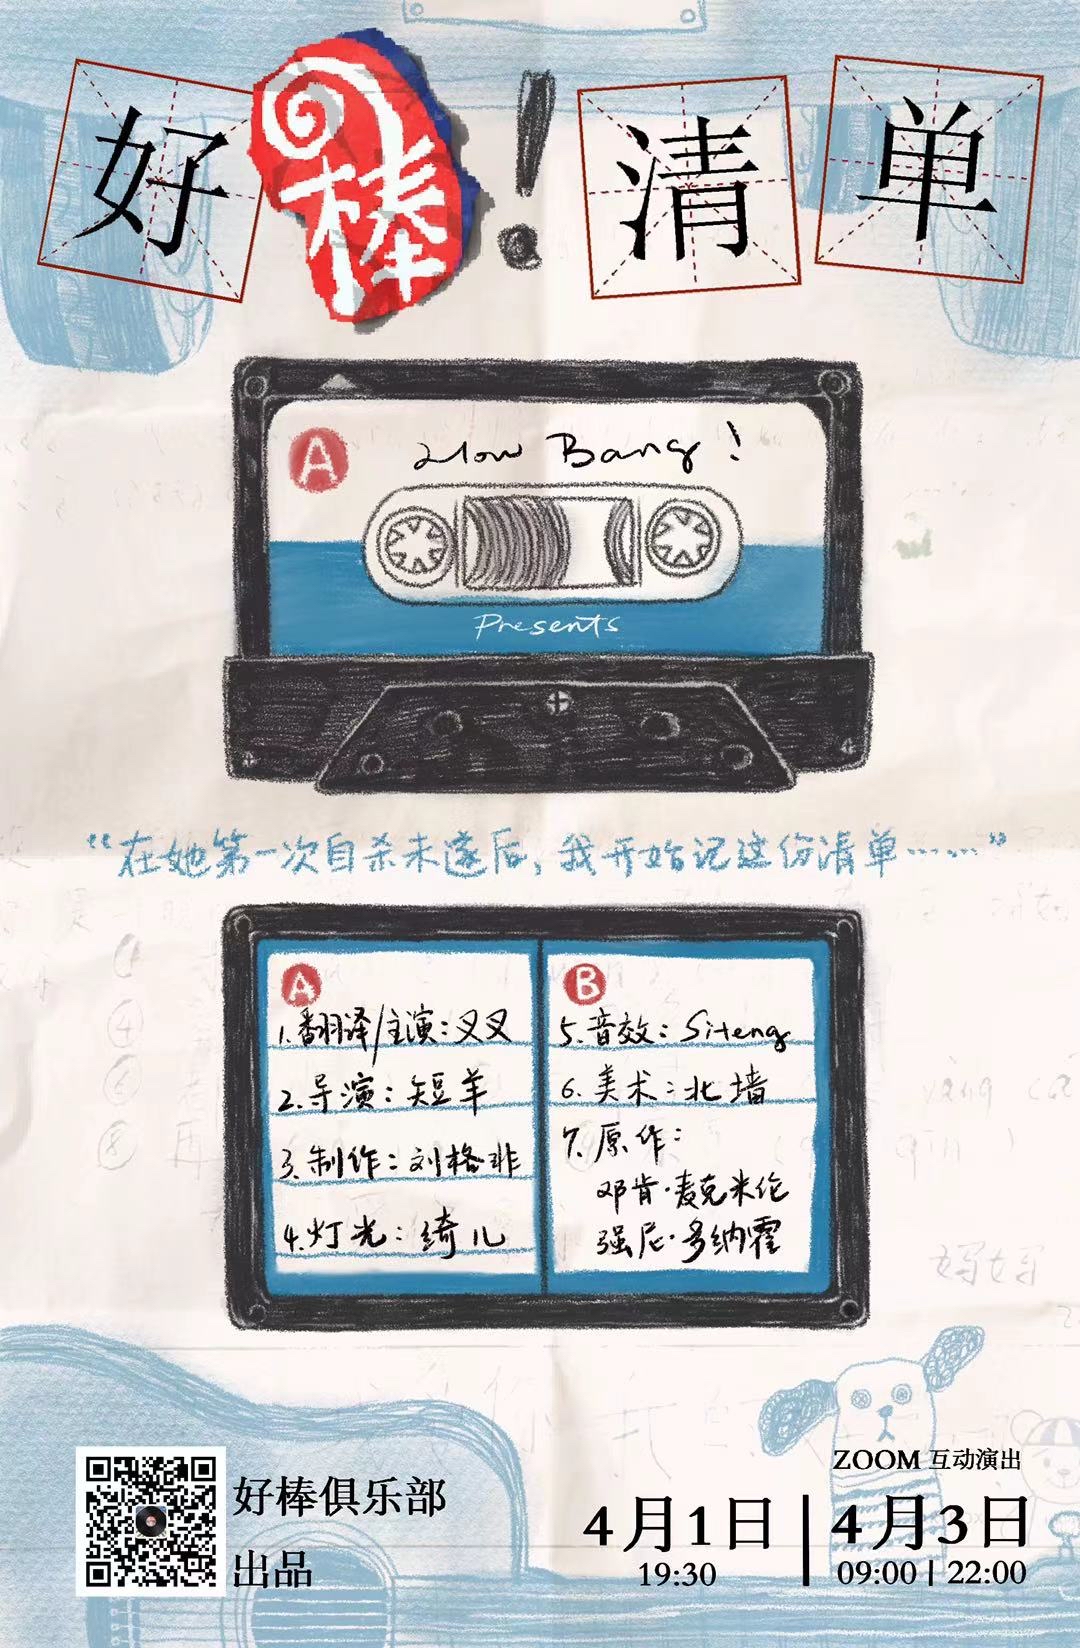 好棒!清单
A
How Bang!
Presents
“在她第一次自杀未遂后,我开始记这份清单……”
A
1.翻译/主演:叉叉
2.导演:短羊
3.制作:刘格非
4.灯光:绮儿
B
5.音效:Siteng
6.美术:北墙
7.原作:
邓肯·麦克米伦
强尼·多纳霍
妈妈
好棒俱乐部
出品
ZOOM 互动演出
4月1日
19:30
4月3日
09:00 | 22:00